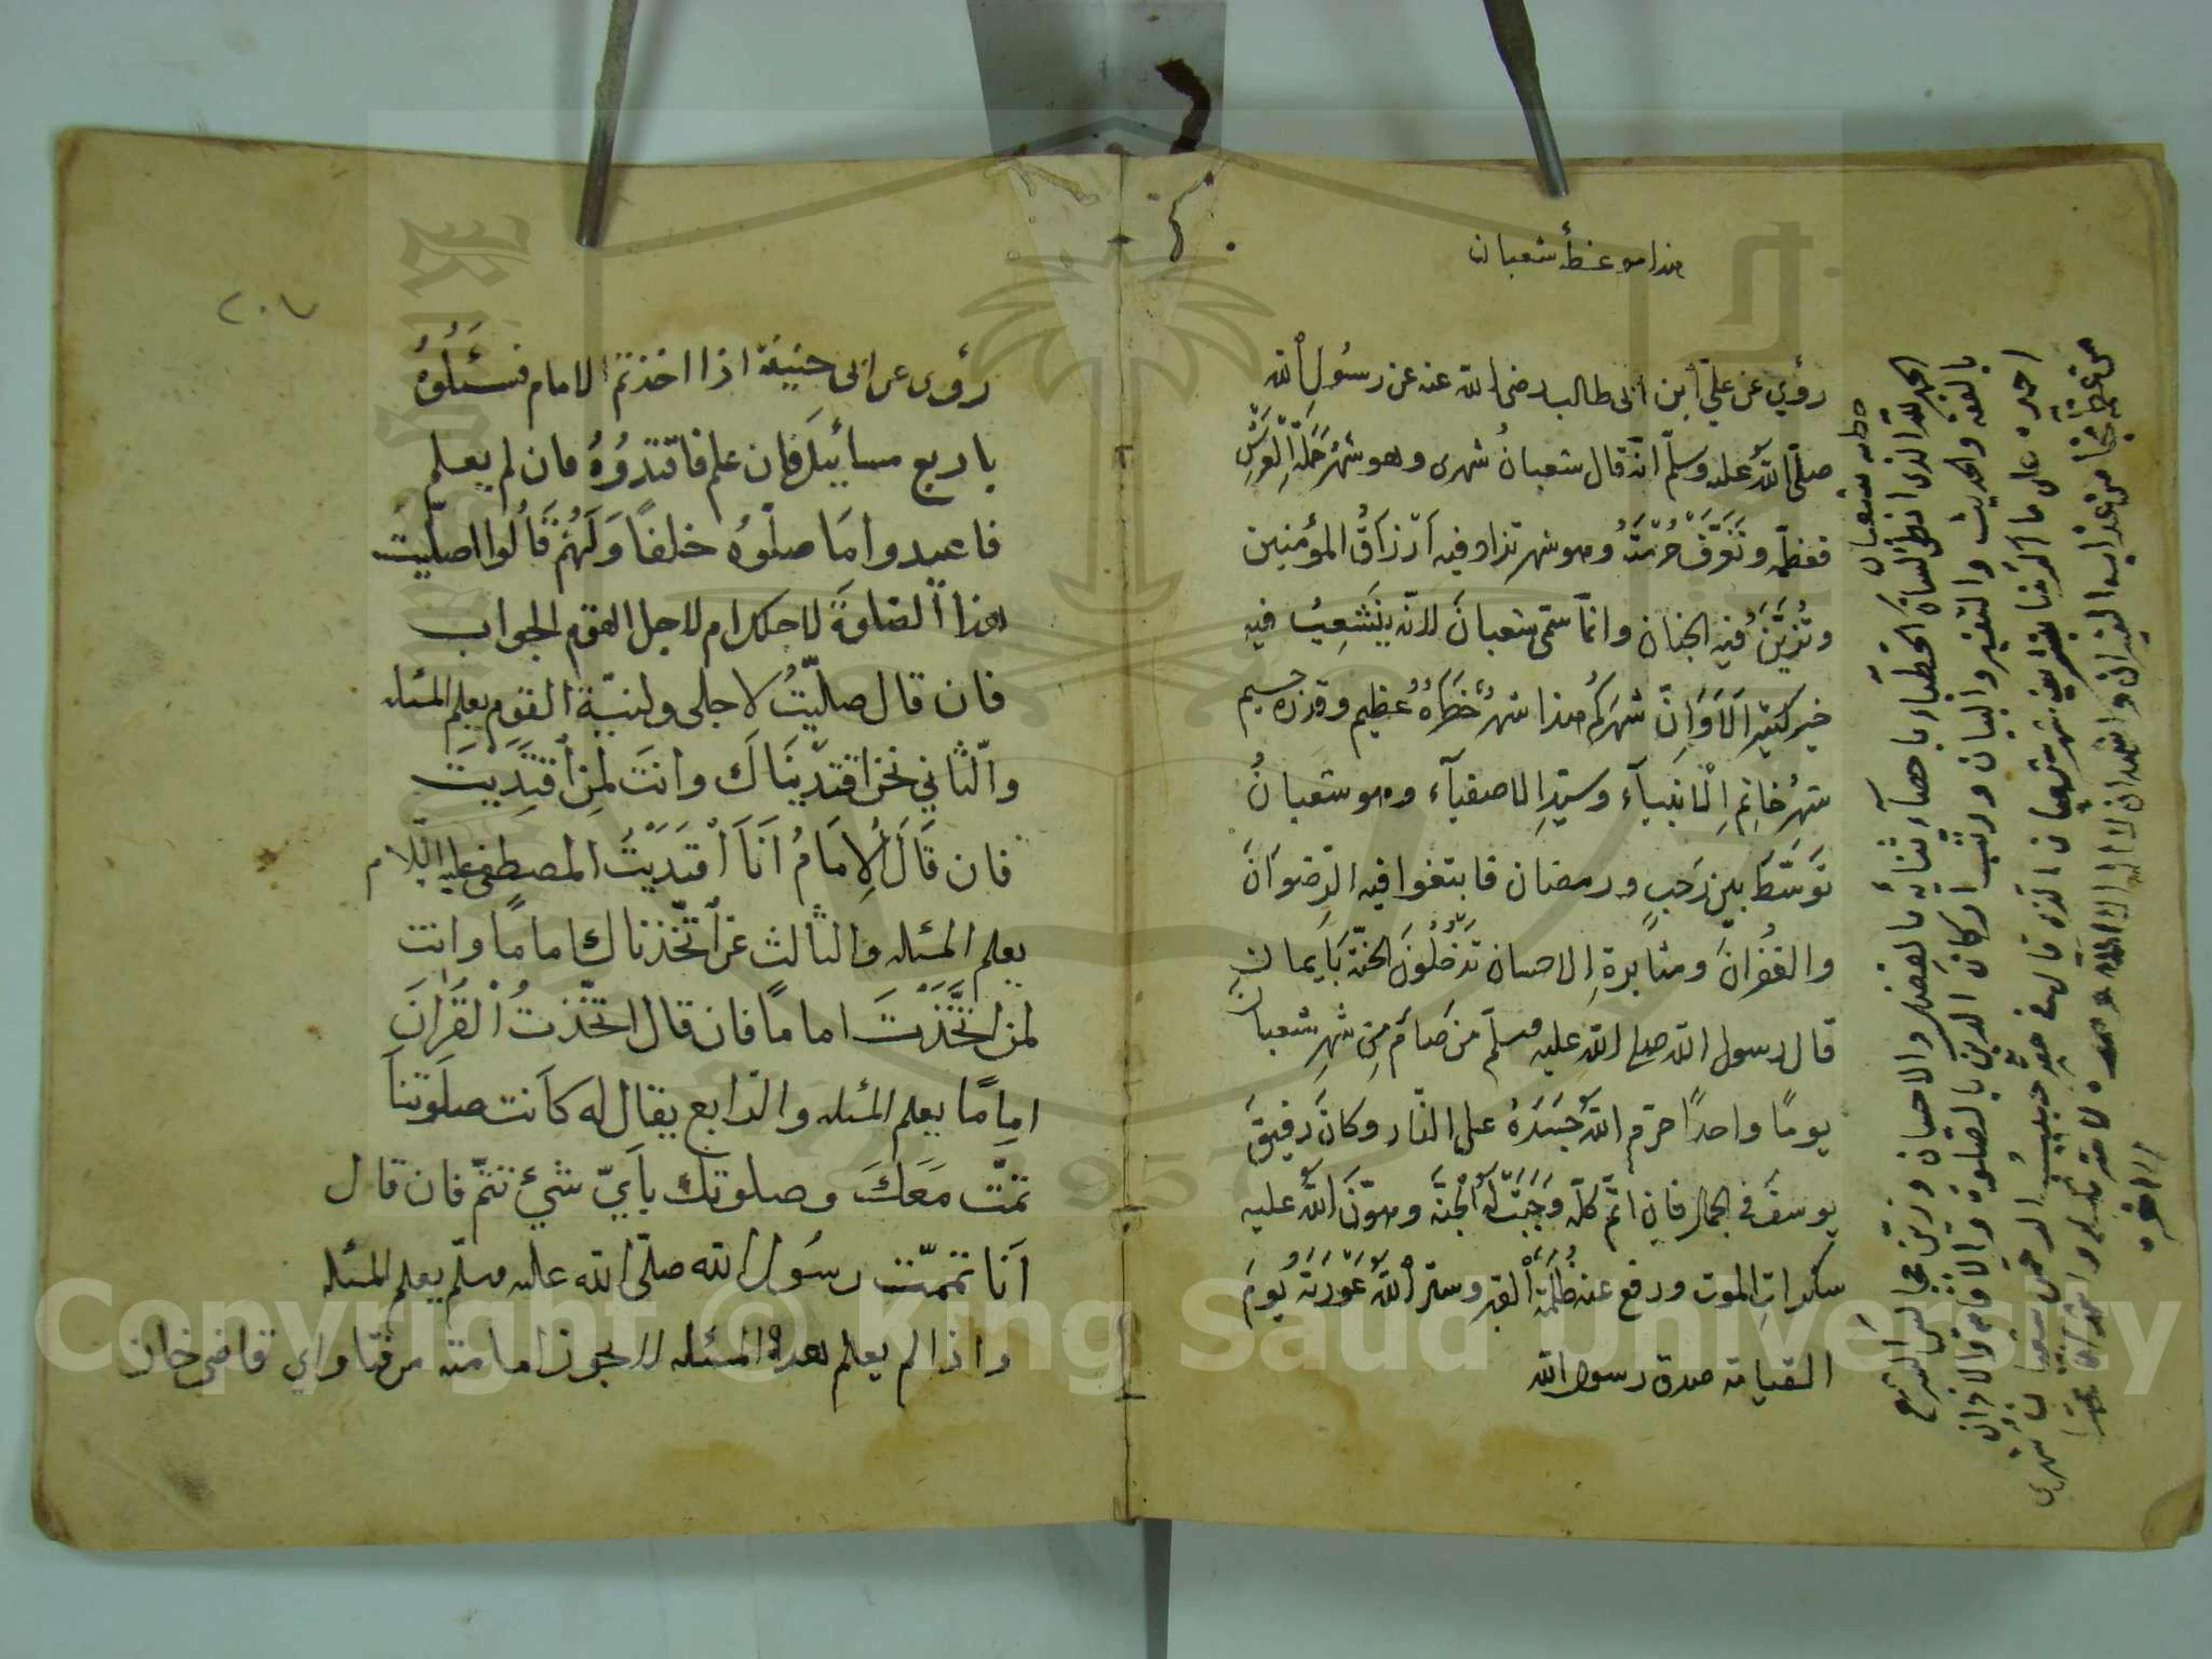 هذا موعظة شعبان
رؤي عن علي ابن ابى طالب رضى الله عنه عن رسول الله
صلى الله عليه وسلم انه قال شعبان شهرى وهو شهر حملة العرش
فعظمه وتعرف حرمته وهو شهر تزاد فيه ارزاق المؤمنين
وتزين فيه الجنان وانما سمى شعبان لانه ينشعب فيه
خير كثير الا وان شهركم هذا شهر خطره عظيم وقدره جسيم
شهر خاتم الانبياء وسيد الاصفياء وهو شعبان
توسط بين رجب ورمضان فابتغوا فيه الرضوان
والغفران ومثابرة الاحسان تدخلون الجنة بايمان
قال رسول الله صلى الله عليه وسلم من صام من شهر شعبان
يومًا واحدًا حرم الله جسده على النار وكان رفيق
يوسف فى الجمال فان اتم كله وجبت له الجنة وهون الله عليه
سكرات الموت ودفع عنه ظلمة القبر وستر الله عورته يوم
القيامة صدق رسول الله
خطبه شعبان
الحمد لله الذى انطق لسان الخطباء باحصاء ثنائه بالفضل والاحسان وزين مجالس الشرع
بالفقه والحديث والتفسير والبيان ورتب اركان الدين بالصلوة والاقامة والاذان
احمده على ما اكرمنا بتشريف شهر شعبان الذى قال فى حقه حبيب الرحمن شعبان شهرى
من عذاب النيران واشهد ان لا اله الا الله وحده لا شريك له
٢٠٧
رؤى عن ابى حنيفة اذا اخذتم الامام فسئلوه
باربع مسائيل فان علم فاقتدوه فان لم يعلم
فاعيدوا ما صلوه خلفًا ولهم قالوا اصليت
هذا الصلوة لاجلك ام لاجل القوم الجواب
فان قال صليت لاجلى ولنية القوم يعلم المسئله
والثاني نحن اقتديناك وانت لمن اقتديت
فان قال الامام انا اقتديت المصطفى عليه السلام
يعلم المسئله والثالث نحن اتخذناك اماما وانت
لمن اتخذت اماما فان قال اتخذت القران
امامًا يعلم المسئله والرابع يقال له كانت صلوتنا
تمت معك وصلوتك باي شئ تتم فان قال
انا تممت رسول الله صلى الله عليه وسلم يعلم المسئله
واذا لم يعلم هذه المسئله لا يجوز امامته من فتاواي قاضى خان
Copyright © King Saud University
1957